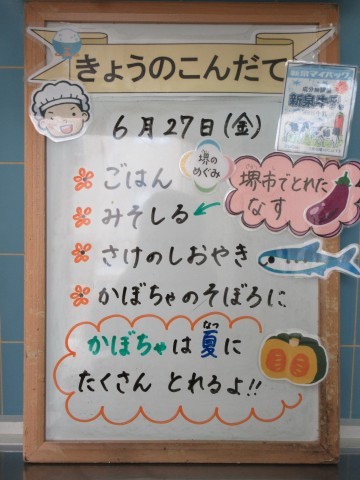 きょうのこんだて
6月27日(金)
ごはん
堺の
めぐみ
みそしる
堺市でとれた
なす
さけのしおやき
かぼちゃのそぼろに
かぼちゃは夏に
なつ
たくさん とれるよ!!